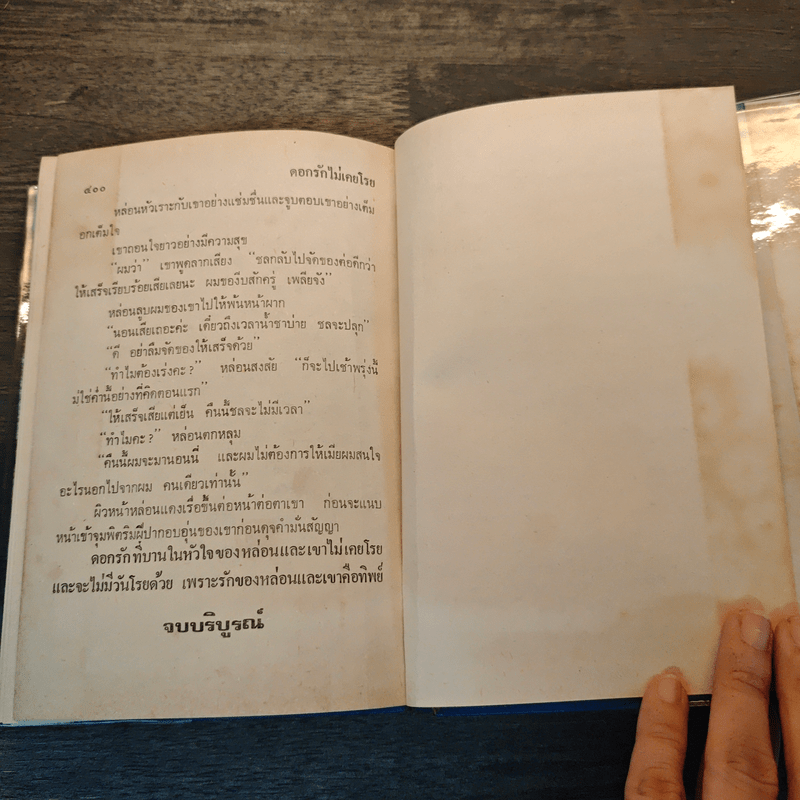 ๔๐๐
ดอกรักไม่เคยโรย
หล่อนหัวเราะกับเขาอย่างแช่มชื่นและจูบตอบเขาอย่างเต็ม
อกเต็มใจ
เขาถอนใจยาวอย่างมีความสุข
“ผมว่า” เขาพูดลากเสียง “ชลกลับไปจัดของต่อดีกว่า
ให้เสร็จเรียบร้อยเสียเลยนะ ผมของีบสักครู่ เพลียจัง”
หล่อนลูบผมของเขาไปให้พ้นหน้าผาก
“นอนเสียเถอะค่ะ เดี๋ยวถึงเวลาน้ำชาบ่าย ชลจะปลุก”
“ดี อย่าลืมจัดของให้เสร็จด้วย”
“ทำไมต้องเร่งคะ?” หล่อนสงสัย “ก็จะไปเช้าพรุ่งนี้
มิใช่ค่ำนี้อย่างที่คิดตอนแรก”
“ให้เสร็จเสียแต่เย็น คืนนี้ชลจะไม่มีเวลา”
“ทำไมคะ?” หล่อนตกหลุม
“คืนนี้ผมจะมานอนนี่ และผมไม่ต้องการให้เมียผมสนใจ
อะไรนอกไปจากผม คนเดียวเท่านั้น”
ผิวหน้าหล่อนแดงเรื่อขึ้นต่อหน้าต่อตาเขา ก่อนจะแนบ
หน้าเข้าจุมพิตริมฝีปากอบอุ่นของเขาก่อนดุจคำมั่นสัญญา
ดอกรักที่บานในหัวใจของหล่อนและเขาไม่เคยโรย
และจะไม่มีวันโรยด้วย เพราะรักของหล่อนและเขาคือทิพย์
จบบริบูรณ์